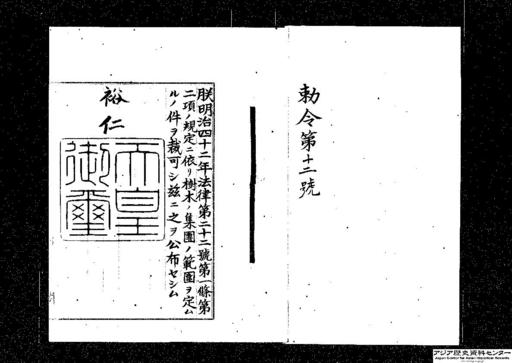 勅令第十二號
朕明治四十二年法律第二十二號第一條第
二項ノ規定ニ依リ樹木ノ集團ノ範圍ヲ定ム
ルノ件ヲ裁可シ茲ニ之ヲ公布セシム
裕仁
天皇
御璽
アジア歴史資料センター
Japan Center for Asian Historical Records